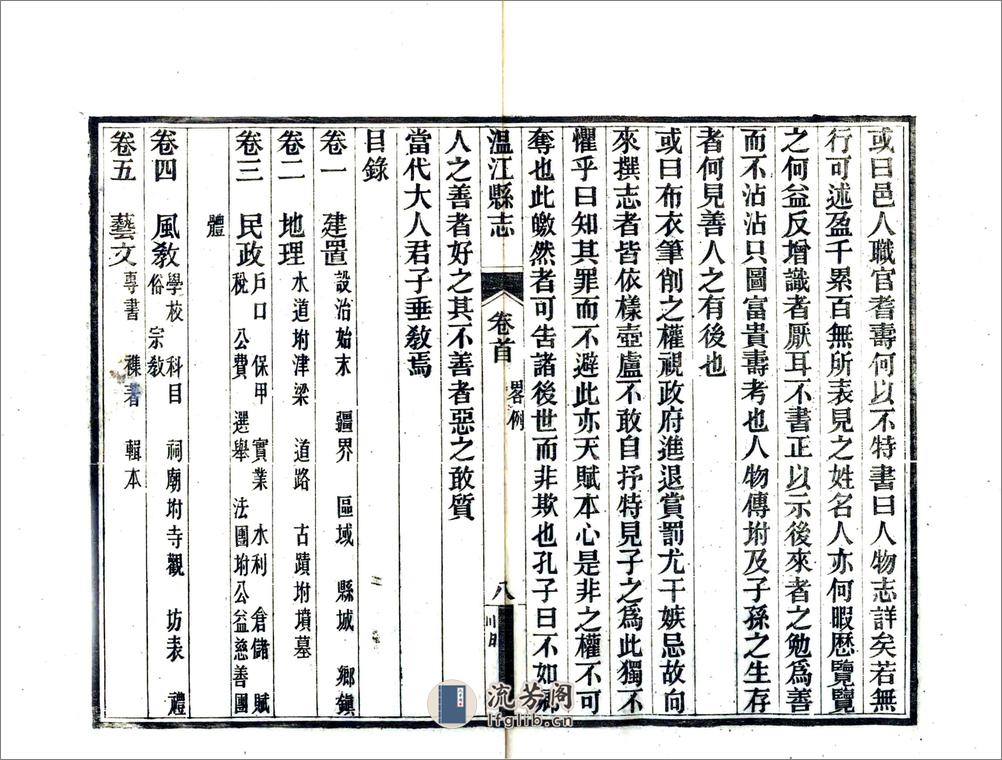 或曰邑人職官耆壽何以不特書曰人物志詳矣若無
行可述盈千累百無所表見之姓名人亦何暇歷覽覽
之何益反增識者厭耳不書正以示後來者之勉爲善
而不沾沾只圖富貴壽考也人物傳坿及子孫之生存
者何見善人之有後也
或曰布衣筆削之權視政府進退賞罰尤干嫉忌故向
來撰志者皆依樣壺盧不敢自抒特見子之爲此獨不
懼乎曰知其罪而不避此亦天賦本心是非之權不可
奪也此皦然者可吿諸後世而非欺也孔子曰不如鄕
溫江縣志 卷首 畧例 八
人之善者好之其不善者惡之敢質
當代大人君子垂敎焉
目錄
卷一 建置 設治始末 疆界 區域 縣城 鄉鎭
卷二 地理 水道坿津梁 道路 古蹟坿墳墓
卷三 民政 戶口 保甲 實業 水利 倉儲 賦
稅 公費 選舉 法團坿公益慈善團
體
卷四 風敎 學校 科目 祠廟坿寺觀 坊表 禮
俗 宗敎
卷五 藝文 專書 襍著 輯本
流芳阁
lfglib.cn